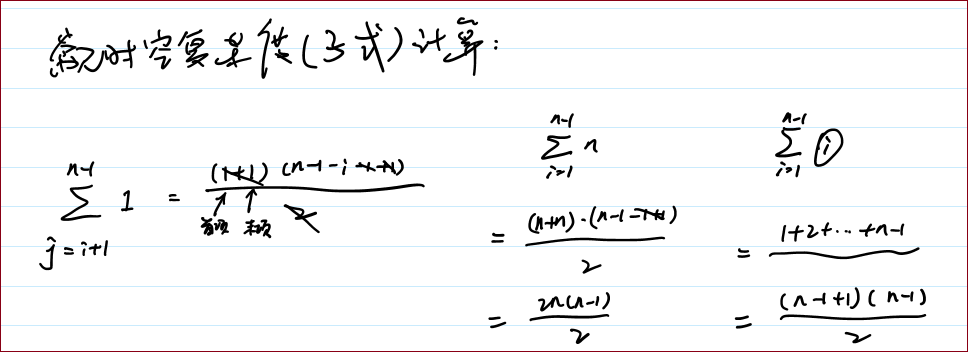 时空复杂度(3式)计算:
∑_{j=i+1}^{n-1} 1 = (1+1)(n-1-i-1+1) / 2
首项 末项
∑_{i=1}^{n-1} n
= (n+n)·(n-1-1+1) / 2
= 2n(n-1) / 2
∑_{i=1}^{n-1} i
= 1+2+⋯+n-1
= (n-1+1)(n-1) / 2